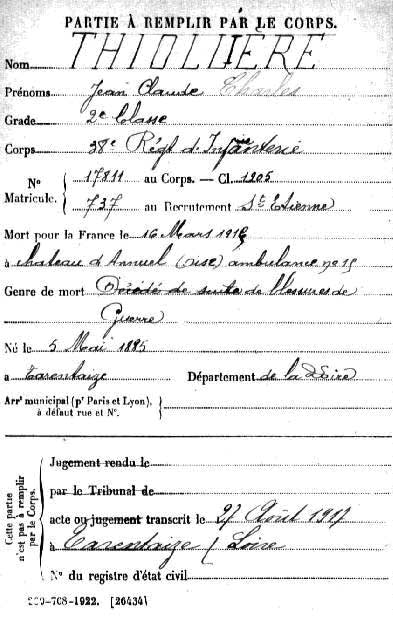 PARTIE À REMPLIR PAR LE CORPS.
Nom THIOLLIÈRE
Prénoms Jean Claude Charles
Grade 2e Classe
Corps 38e Régt d'Infanterie
No Matricule. 17811 au Corps. — Cl. 1205
737 au Recrutement St Etienne
Mort pour la France le 16 Mars 1916
à chateau d'Annuel (oise) ambulance no 15
Genre de mort Décédé de suite de blessures de
Guerre
Né le 5 Mai 1885
à Tarentaize Département de la Loire
Arrt municipal (pr Paris et Lyon), à défaut rue et No.
Cette partie n'est pas à remplir par le Corps.
Jugement rendu le
par le Tribunal de
acte ou jugement transcrit le 27 Août 1917
à Tarentaize (Loire
No du registre d'état civil
-708-1922. [26434]